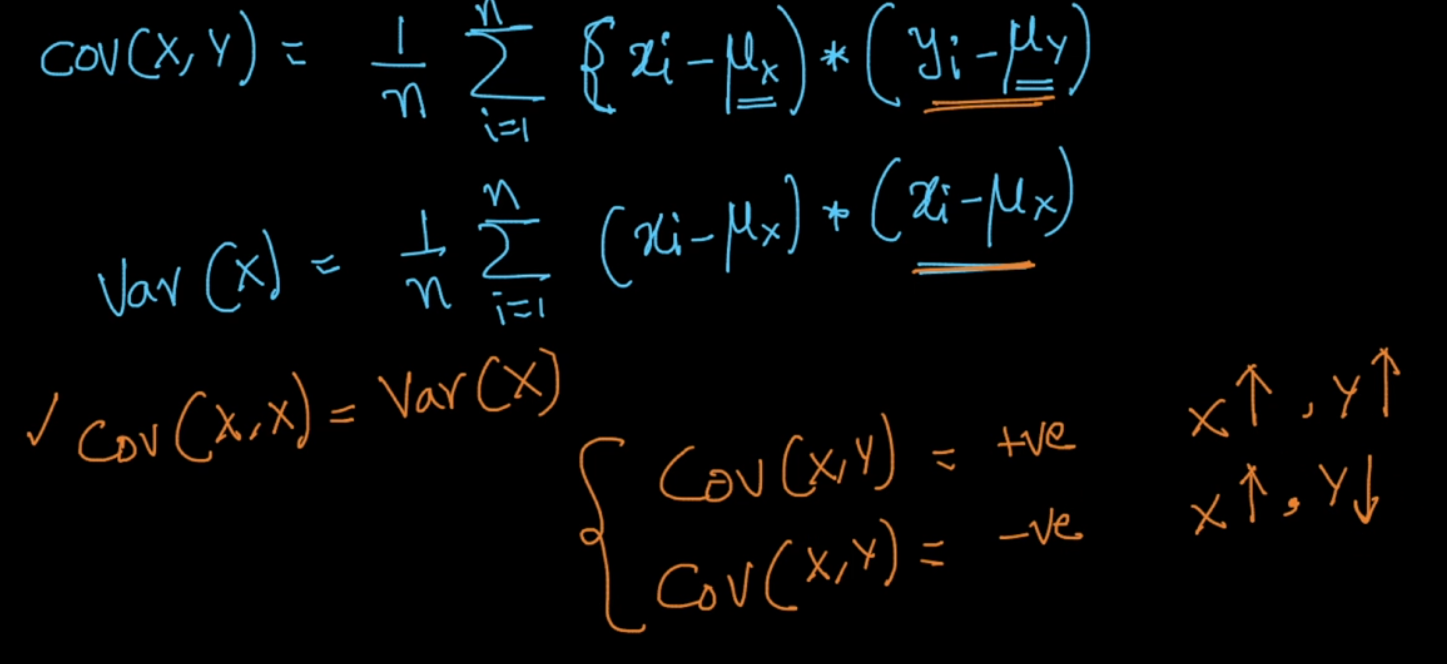 cov(x, y) = 1/n Σ_{i=1}^{n} {xi - μx) * (yi - μy)
Var (x) = 1/n Σ_{i=1}^{n} (xi - μx) * (xi - μx)
✓ Cov (x,x) = Var (x)
x↑, y↑
Cov (x,y) = +ve
x↑, y↓
Cov (x,y) = -ve